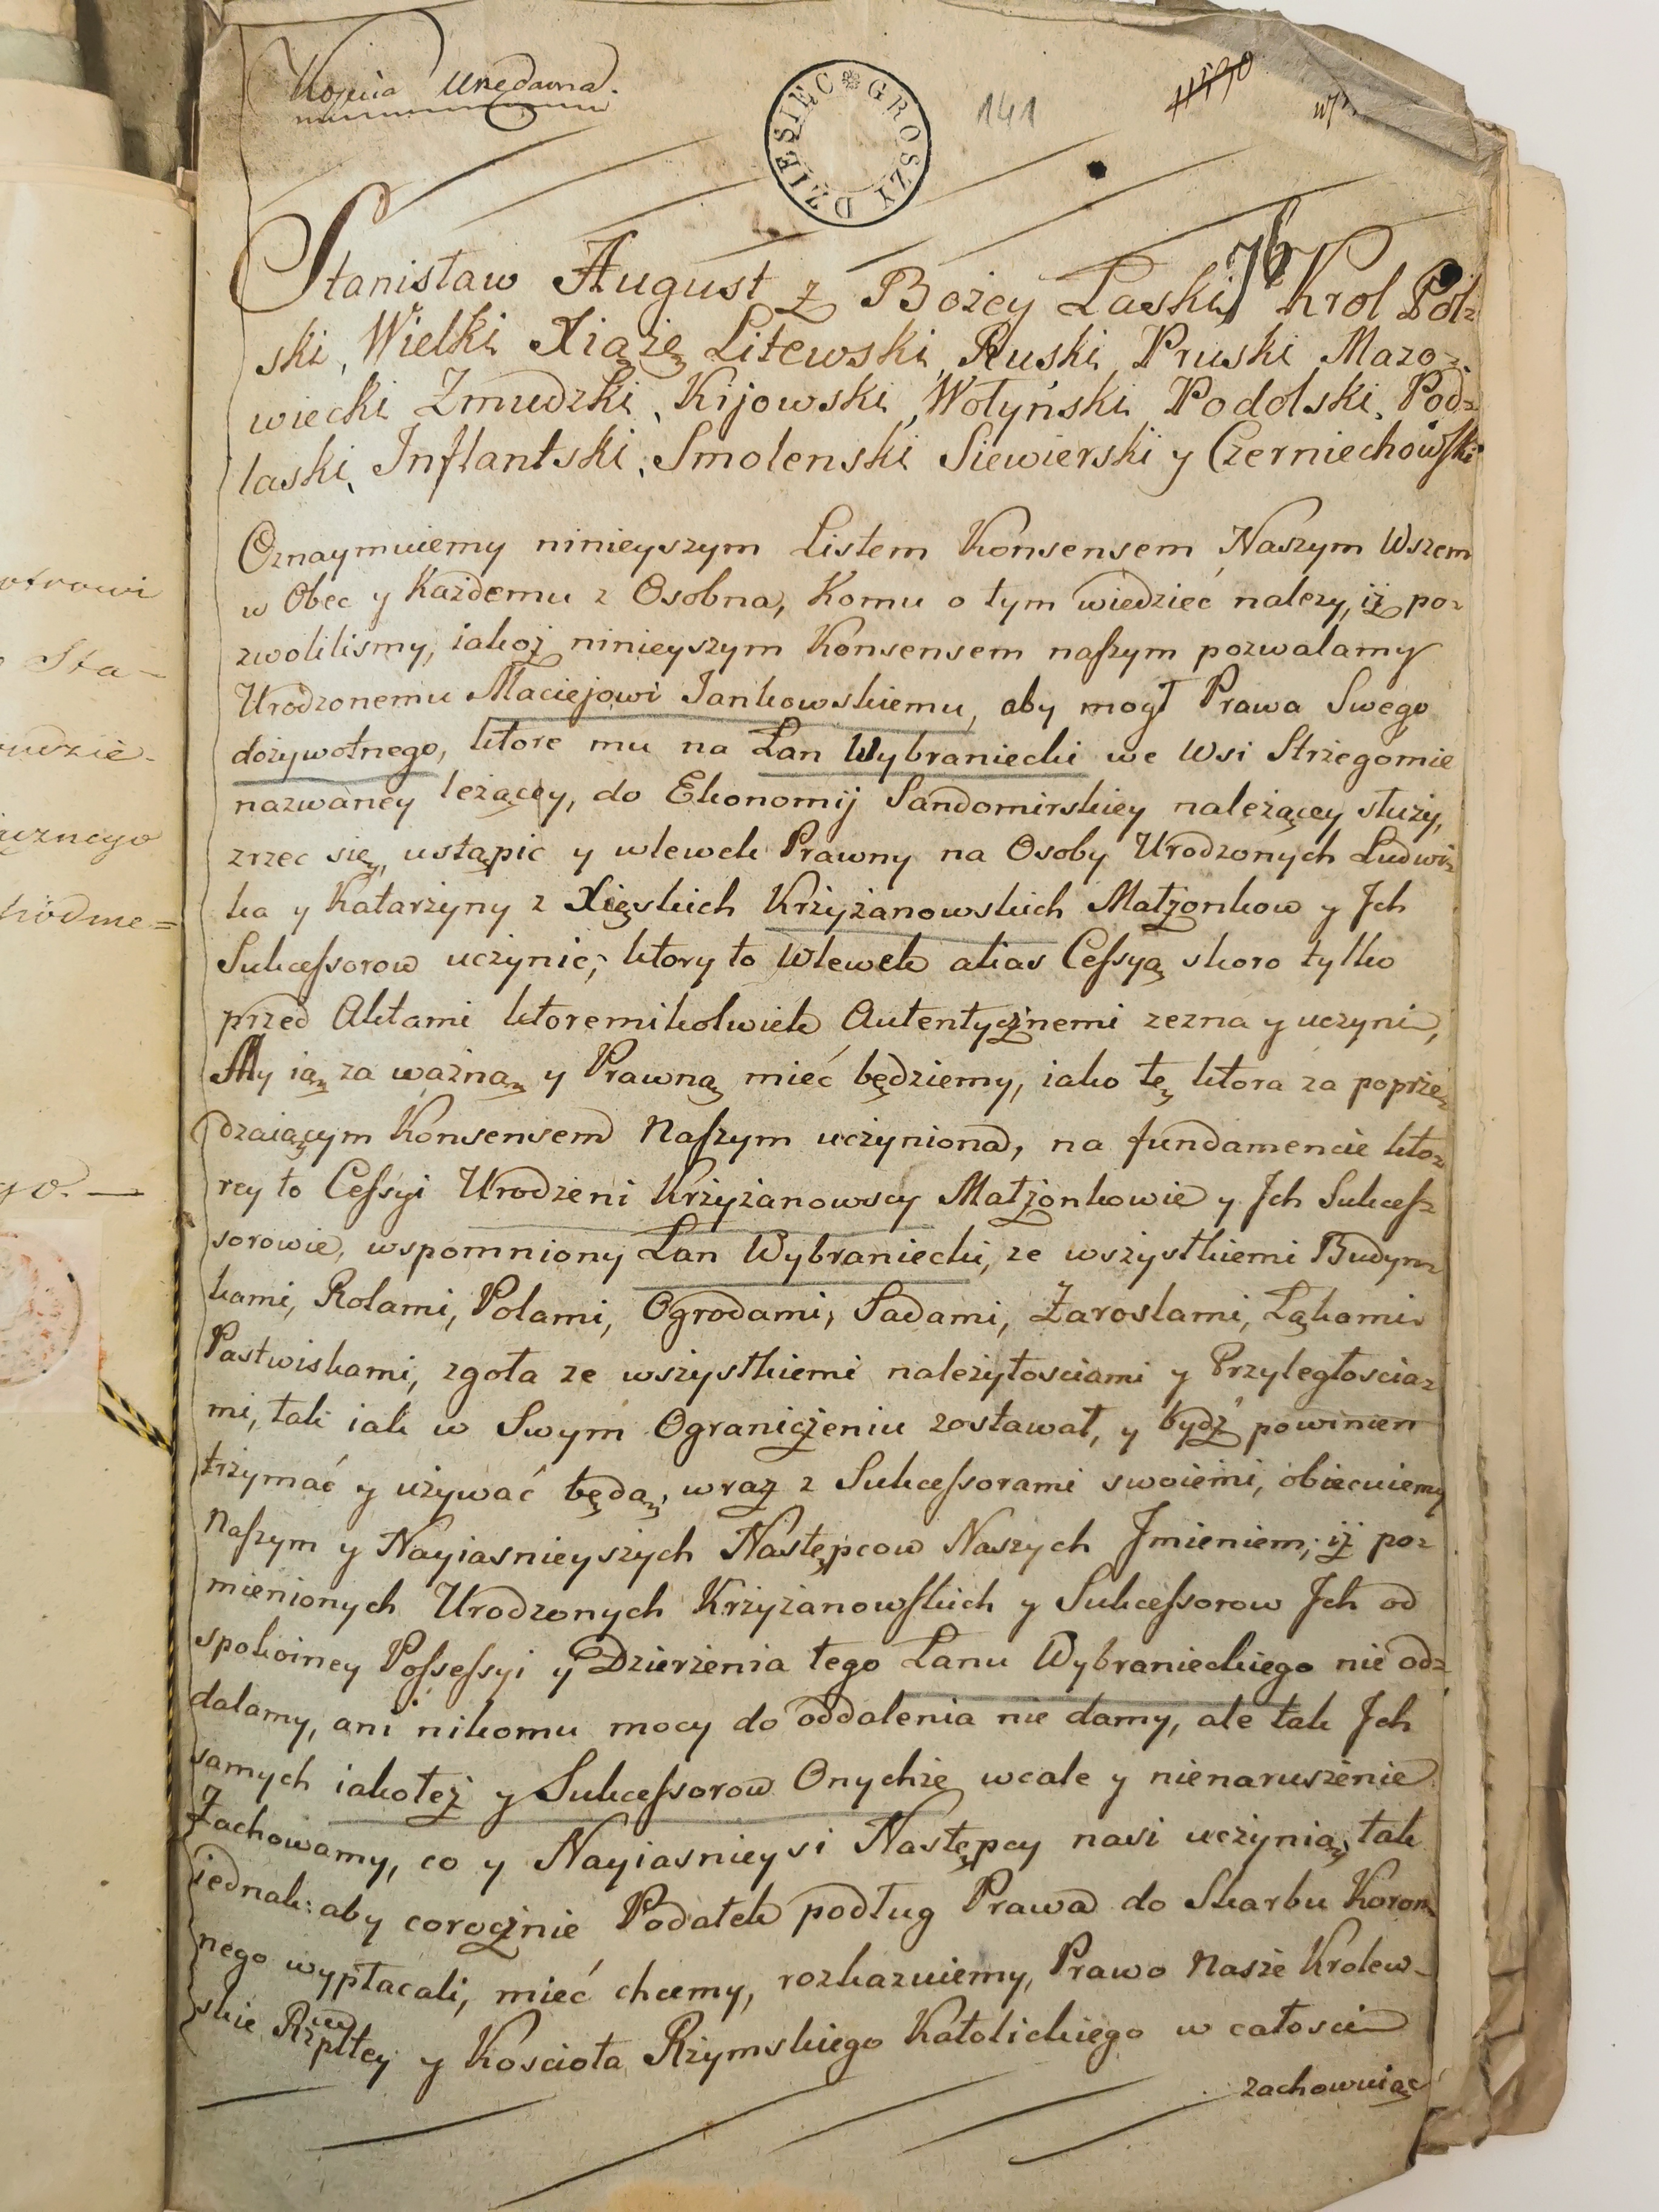 Kopiia Urzędowna.
DZIESIĘC GROSZY
141
76
Stanisław August z Bożey Łaski Krol Pol=
ski, Wielki Xiąże Litewski, Ruski, Pruski Mazo=
wiecki Zmudzki, Kijowski, Wołyński Podolski, Pod=
laski, Inflantski, Smolenski Siewierski y Czerniechowski
Oznaymuiemy ninieyszym Listem Konsensem Naszym Wszem
w Obec y Każdemu z Osobna, Komu o tym wiedzieć nalezy, iż po=
zwolilismy, iakoż ninieyszym Konsensem naszym pozwalamy
Urodzonemu Maciejowi Jankowskiemu, aby mogł Prawa Swego
dożywotnego, ktore mu na Łan Wybraniecki we Wsi Strzegomie
nazwaney leżącey, do Ekonomij Sandomirskiey należącey służy,
zrzec się, ustąpic y wlewek Prawny na Osoby Urodzonych Ludwi=
ka y Katarzyny z Xięskich Krzyżanowskich Małżonkow y Jch
Sukcessorow uczynic; ktory to Wlewek alias Cessyą skoro tylko
przed Aktami ktoremikolwiek Autentycznemi zezna y uczyni,
My ią za ważną y Prawną mieć będziemy, iako tę ktora za poprze=
dzaiącym Konsensem Naszym uczyniona, na fundamencie kto=
rey to Cessyi Urodzeni Krzyżanowscy Małżonkowie y Jch Sukces=
sorowie, wspomniony Łan Wybraniecki, ze wszystkiemi Budyn=
kami, Rolami, Polami, Ogrodami, Sadami, Zaroslami, Łąkami
Pastwiskami, zgoła ze wszystkiemi należytosciami y Przyległościa=
mi, tak iak w Swym Ograniczeniu zostawał, y bydź powinien
trzymać y używać będą, wraz z Sukcessorami swoiemi, obiecuiemy
Naszym y Nayiasnieyszych Następcow Naszych Jmieniem; iż po=
mienionych Urodzonych Krzyżanowskich y Sukcessorow Jch od
spokoiney Possessyi y Dzierżenia tego Łanu Wybranieckiego nie od=
dalamy, ani nikomu mocy do oddalenia nie damy, ale tak Jch
samych iakoteż y Sukcessorow Onychże wcale y nienaruszenie
Zachowamy, co y Nayiasnieysi Następcy nasi uczynią, tak
iednak: aby corocznie Podatek podług Prawa do Skarbu Koron=
nego wypłacali, mieć chcemy, rozkazuiemy, Prawo Nasze Krolew=
skie Rzpltey y Koscioła Rzymskiego Katolickiego w całosci
zachowuiąc